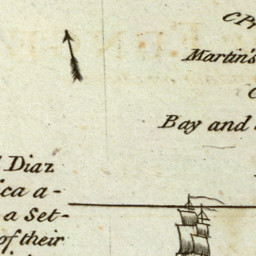 C Pr
Martin's
C
Bay and
Diaz
ica a-
a Set-
of their